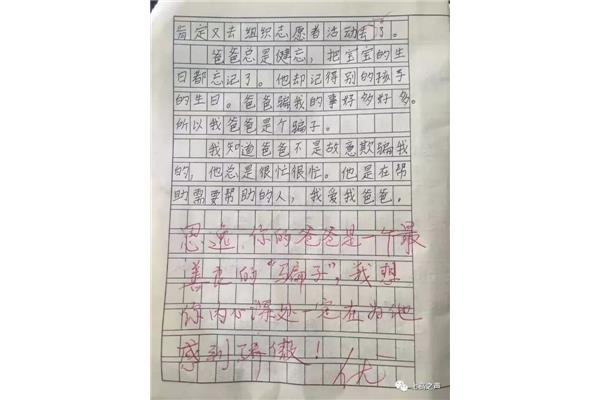 肯定又去组织志愿者活动去了。
爸爸总是健忘，把宝宝的生
日都忘记了。他却记得别的孩子
的生日。爸爸骗我的事好多好多。
所以我爸爸是个骗子。
我知道爸爸不是故意欺骗我
的，他总是很忙很忙。他是在帮
助需要帮助的人，我爱我爸爸。
思逸，你的爸爸是一个最
善良的“骗子”，我想
你内心深处一定在为他
感到骄傲！
优
七色之声